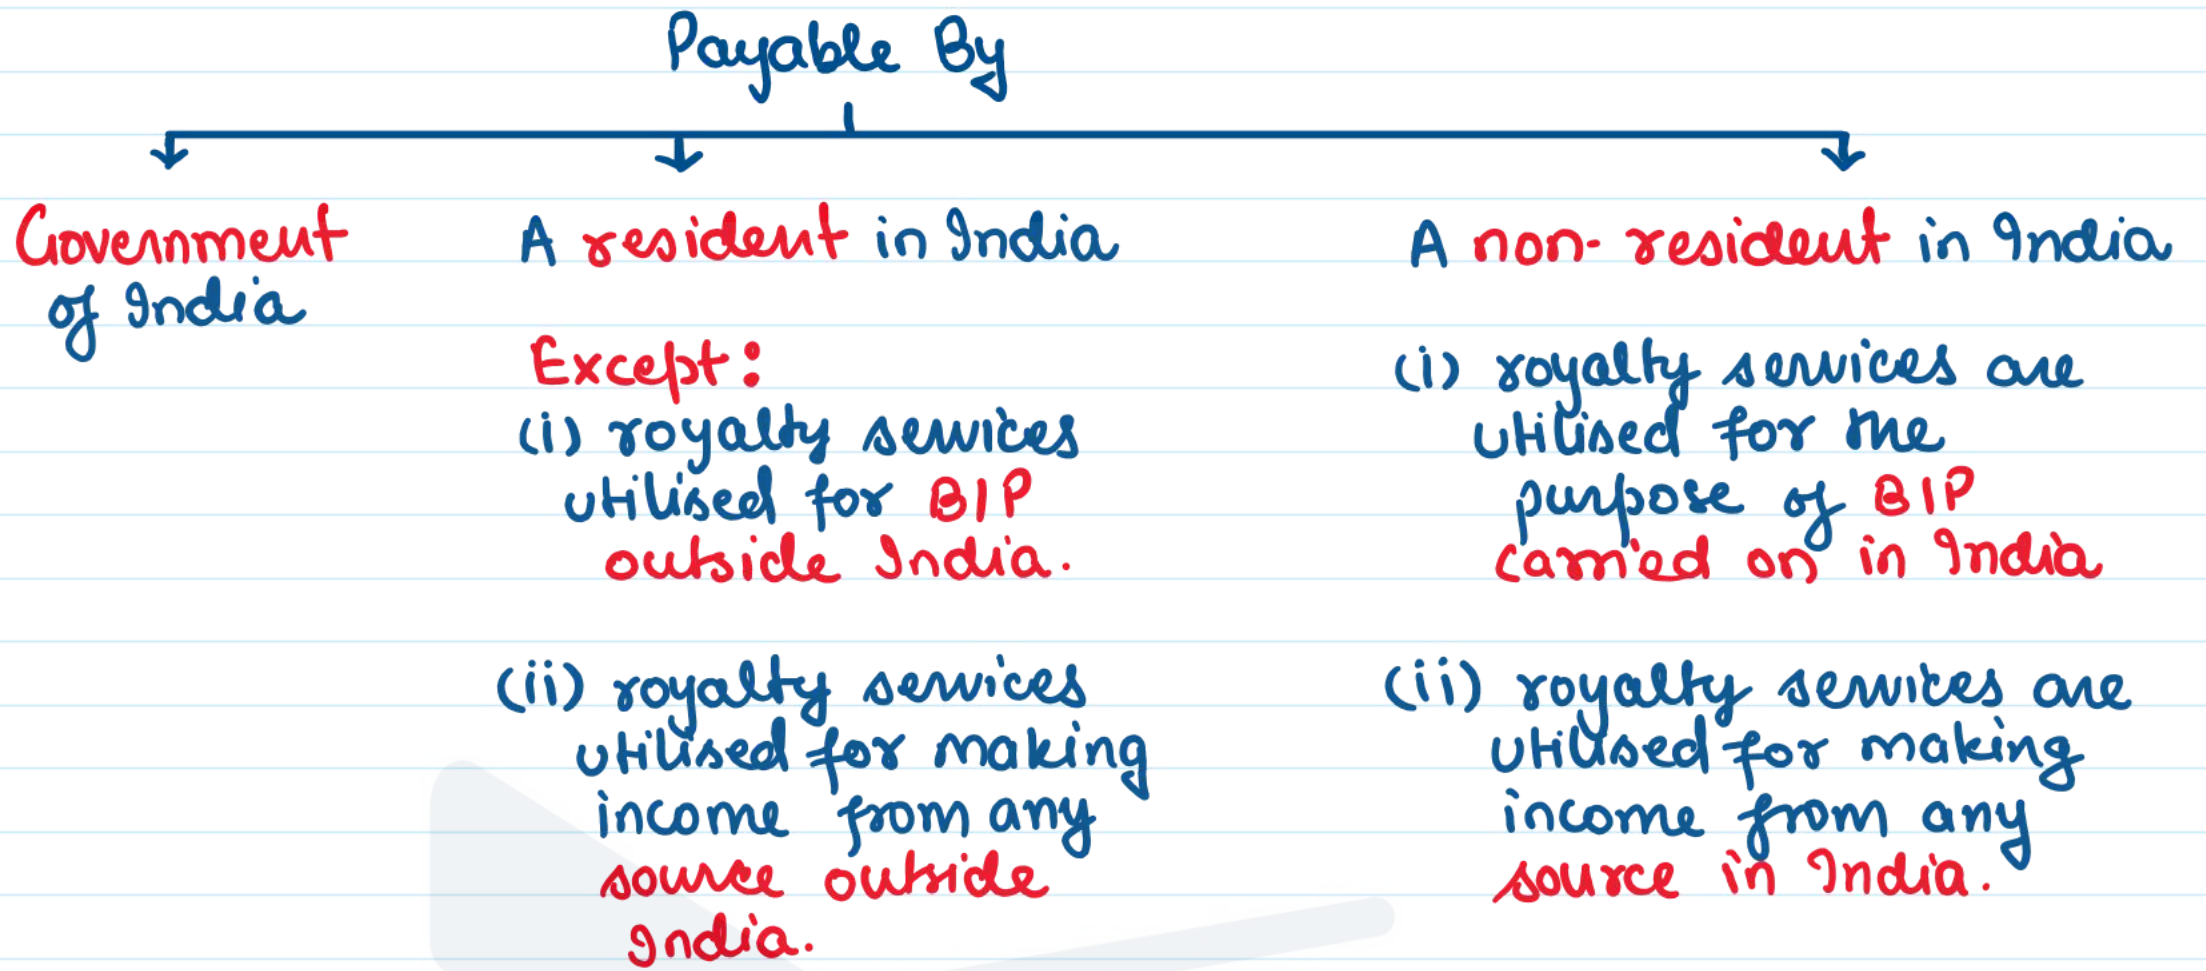 Payable By
Government
of India
A resident in India
Except:
(i) royalty services
utilised for BIP
outside India.
(ii) royalty services
utilised for making
income from any
source outside
India.
A non-resident in India
(i) royalty services are
utilised for the
purpose of BIP
carried on in India
(ii) royalty services are
utilised for making
income from any
source in India.